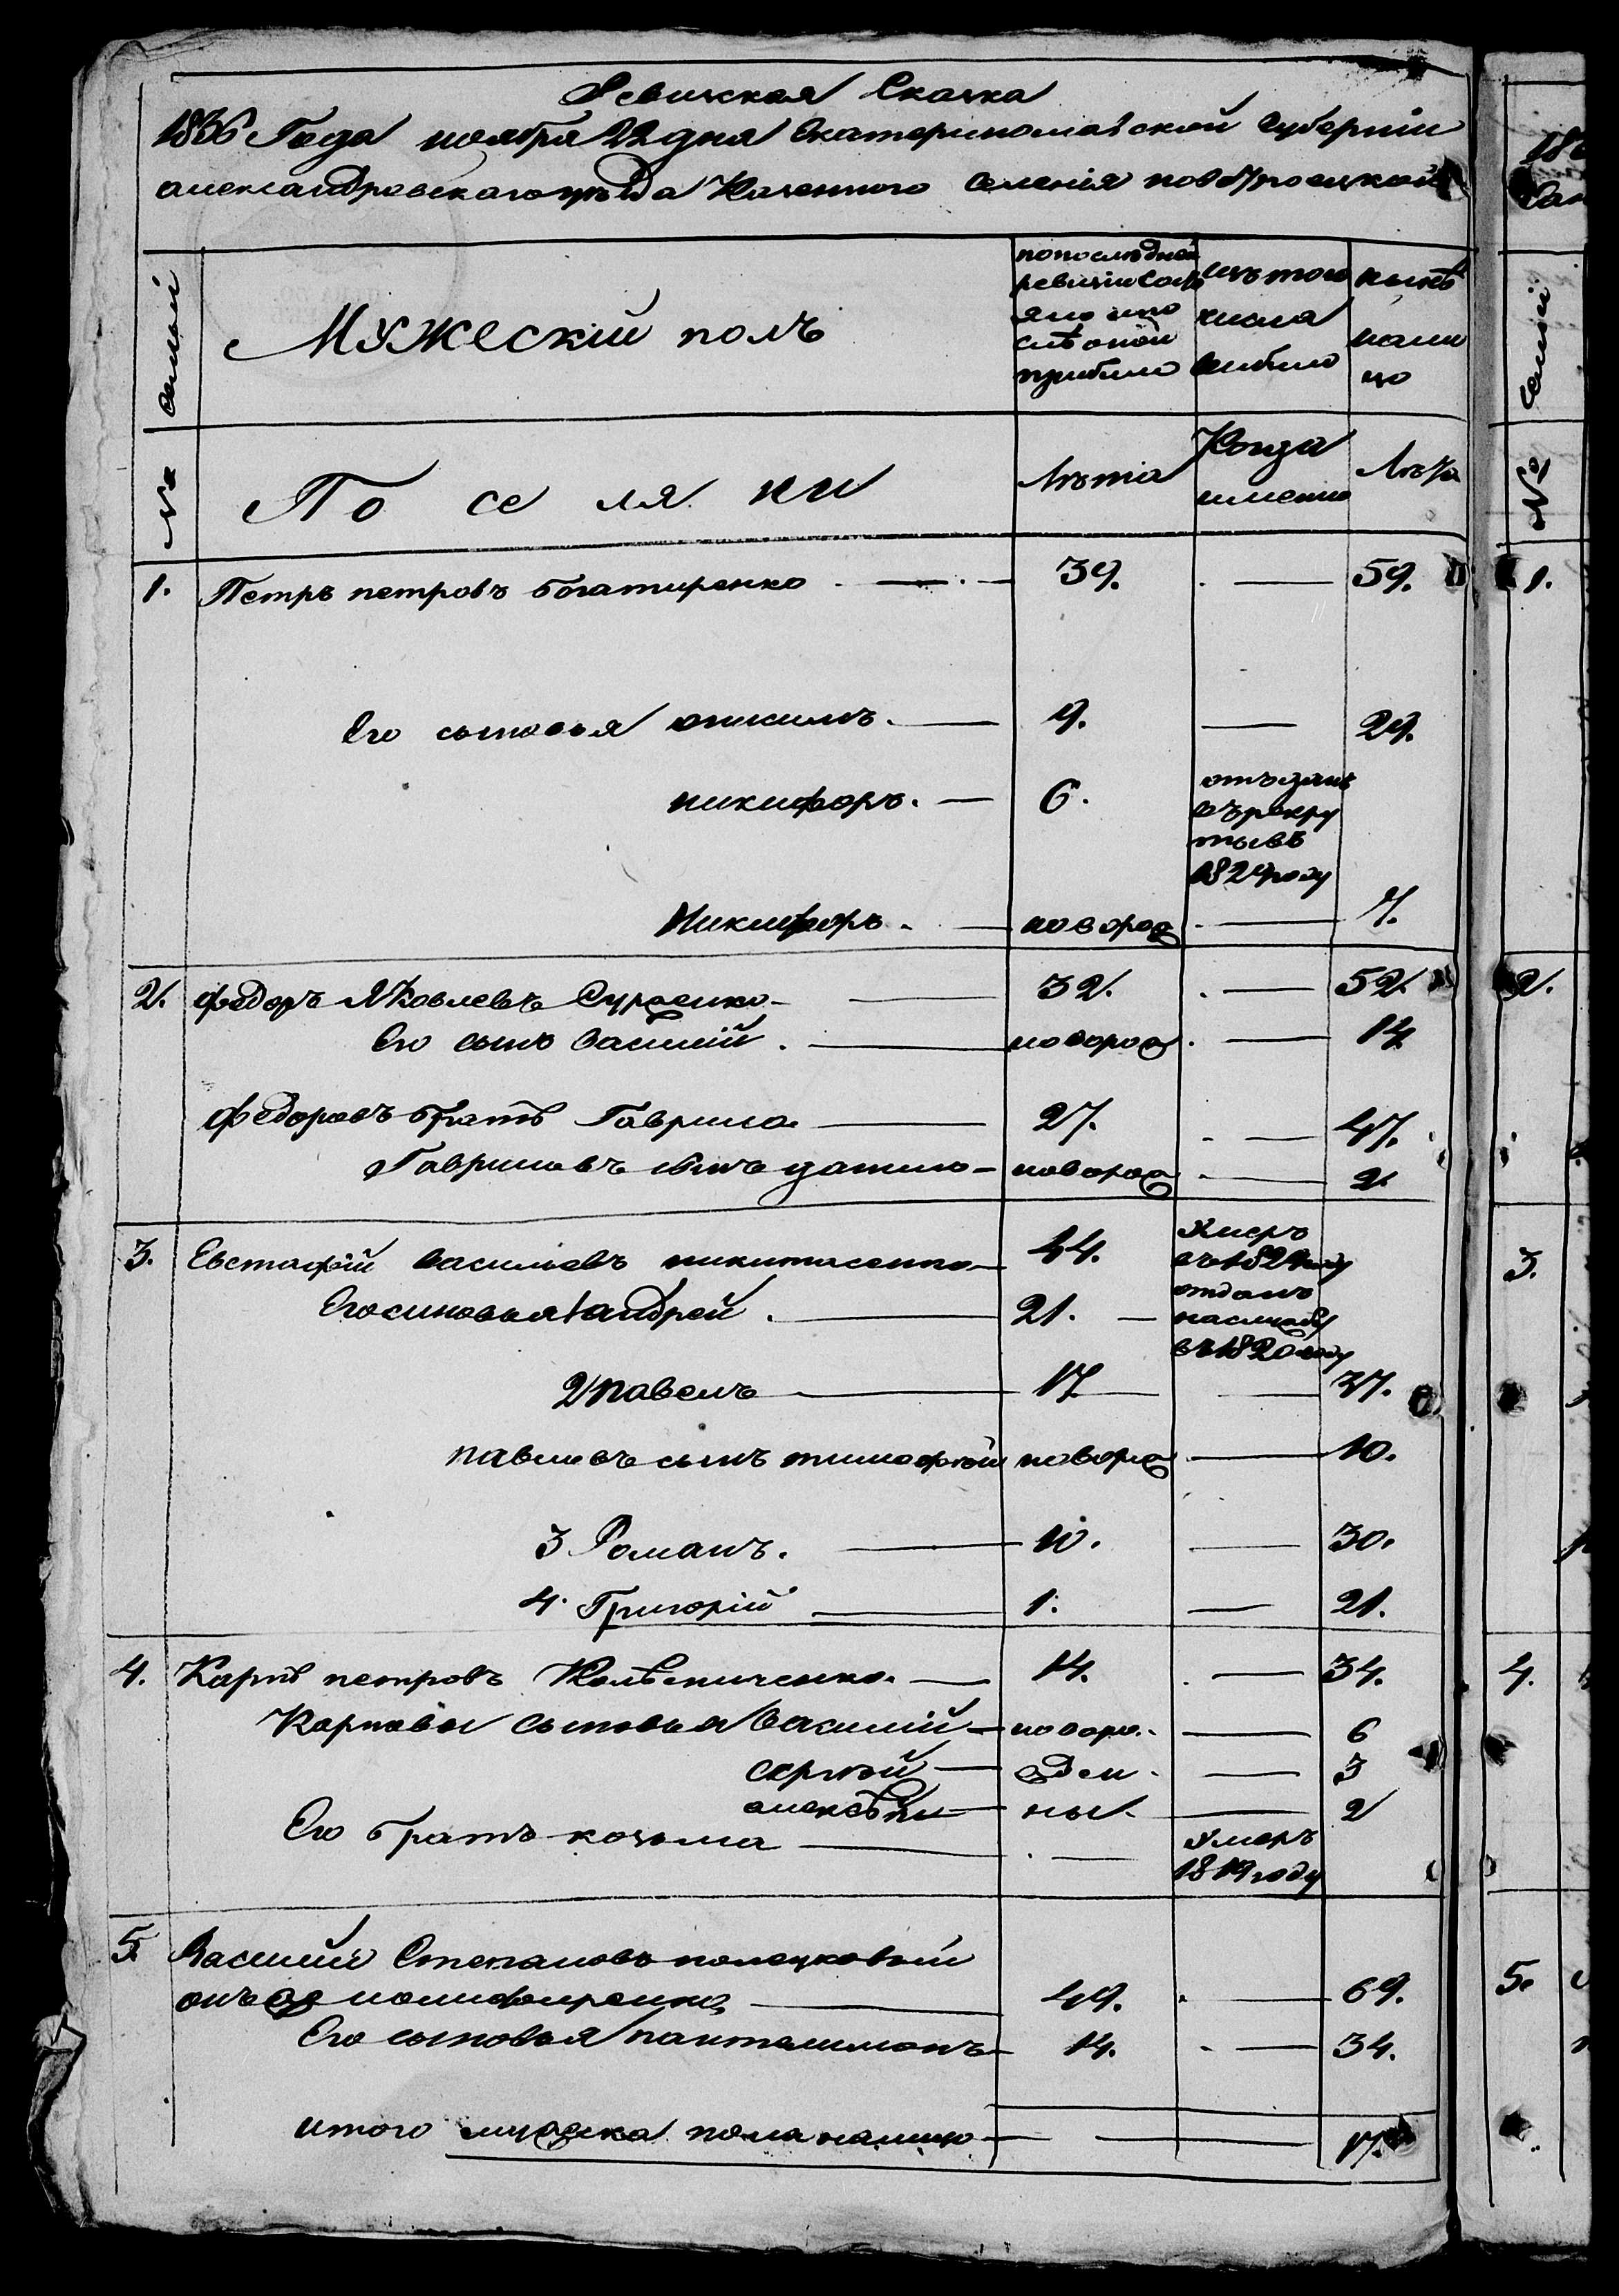 Ревизская Сказка
1836 Года ноября 22 дня Екатеринославской губернии
александровскаго уѣзда Казенного селенія новотроецкой
№ Семьи
Мужескій полъ
попоследней ревизіи Состояло ипо слѣ оной прибыло
изъ того числа выбыло
нынѣ налицо
По се ля не
Лѣта
Когда имено
Лѣта
1. Петръ петровъ богатиренко 39. 59.
Его сыновья 9. 29.
никифоръ. 6. отъданъ въ рекру тывъ 1829 году
Никифоръ. новорож 7.
2. федоръ Яковлевъ 32. 52.
Его сынъ василій. новорож. 14
федоровъ братъ Гаврило 27. 47.
Гавриловъ сынъ данило новорож 2
3. Евстафій васильевъ никитасенко 44. Умеръ въ 1829 году
Его синовья 1 андрей. 21. отданъ наслужбу въ 1820 году
2 павелъ 17 37.
павловъ сынъ тимофей новорож 10.
3 Романъ. 10. 30.
4. Григорій 1. 21.
4. Карпъ петровъ 14. 34.
Карповы сыновья василій новоро. 6
сергѣй жден. 3
алексѣй ные. 2
Его братъ козма Умеръ 1819 году
5. Василий Степановъ
онъ же 49. 69.
Его сыновья пантелимонъ 14. 34.
итого мужеска пола налицо 17.
186
Сел
№ Семьи
1.
2.
3.
4.
5.